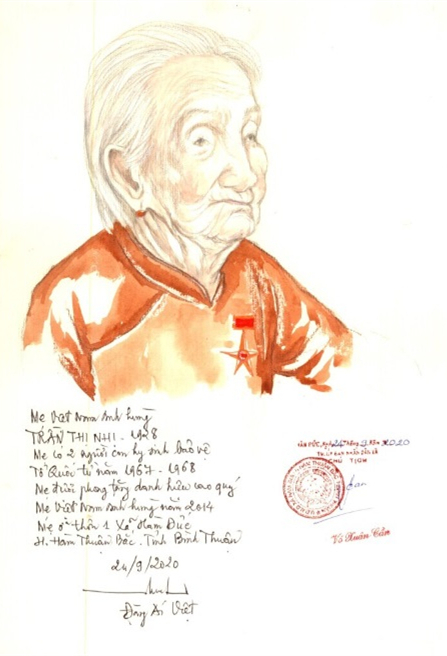 Mẹ Việt Nam anh hùng
TRẦN THỊ NHI - 1928
Mẹ có 2 người con hy sinh bảo vệ
Tổ Quốc từ năm 1967 - 1968
Mẹ được phong tặng danh hiệu cao quý
Mẹ Việt Nam anh hùng năm 2014
Mẹ ở thôn 1 Xã Hàm Đức
H. Hàm Thuận Bắc. Tỉnh Bình Thuận
24/9/2020
Đặng Ái Việt
24 tháng 9 năm 2020
CHỦ TỊCH
Võ Xuân Cẩn